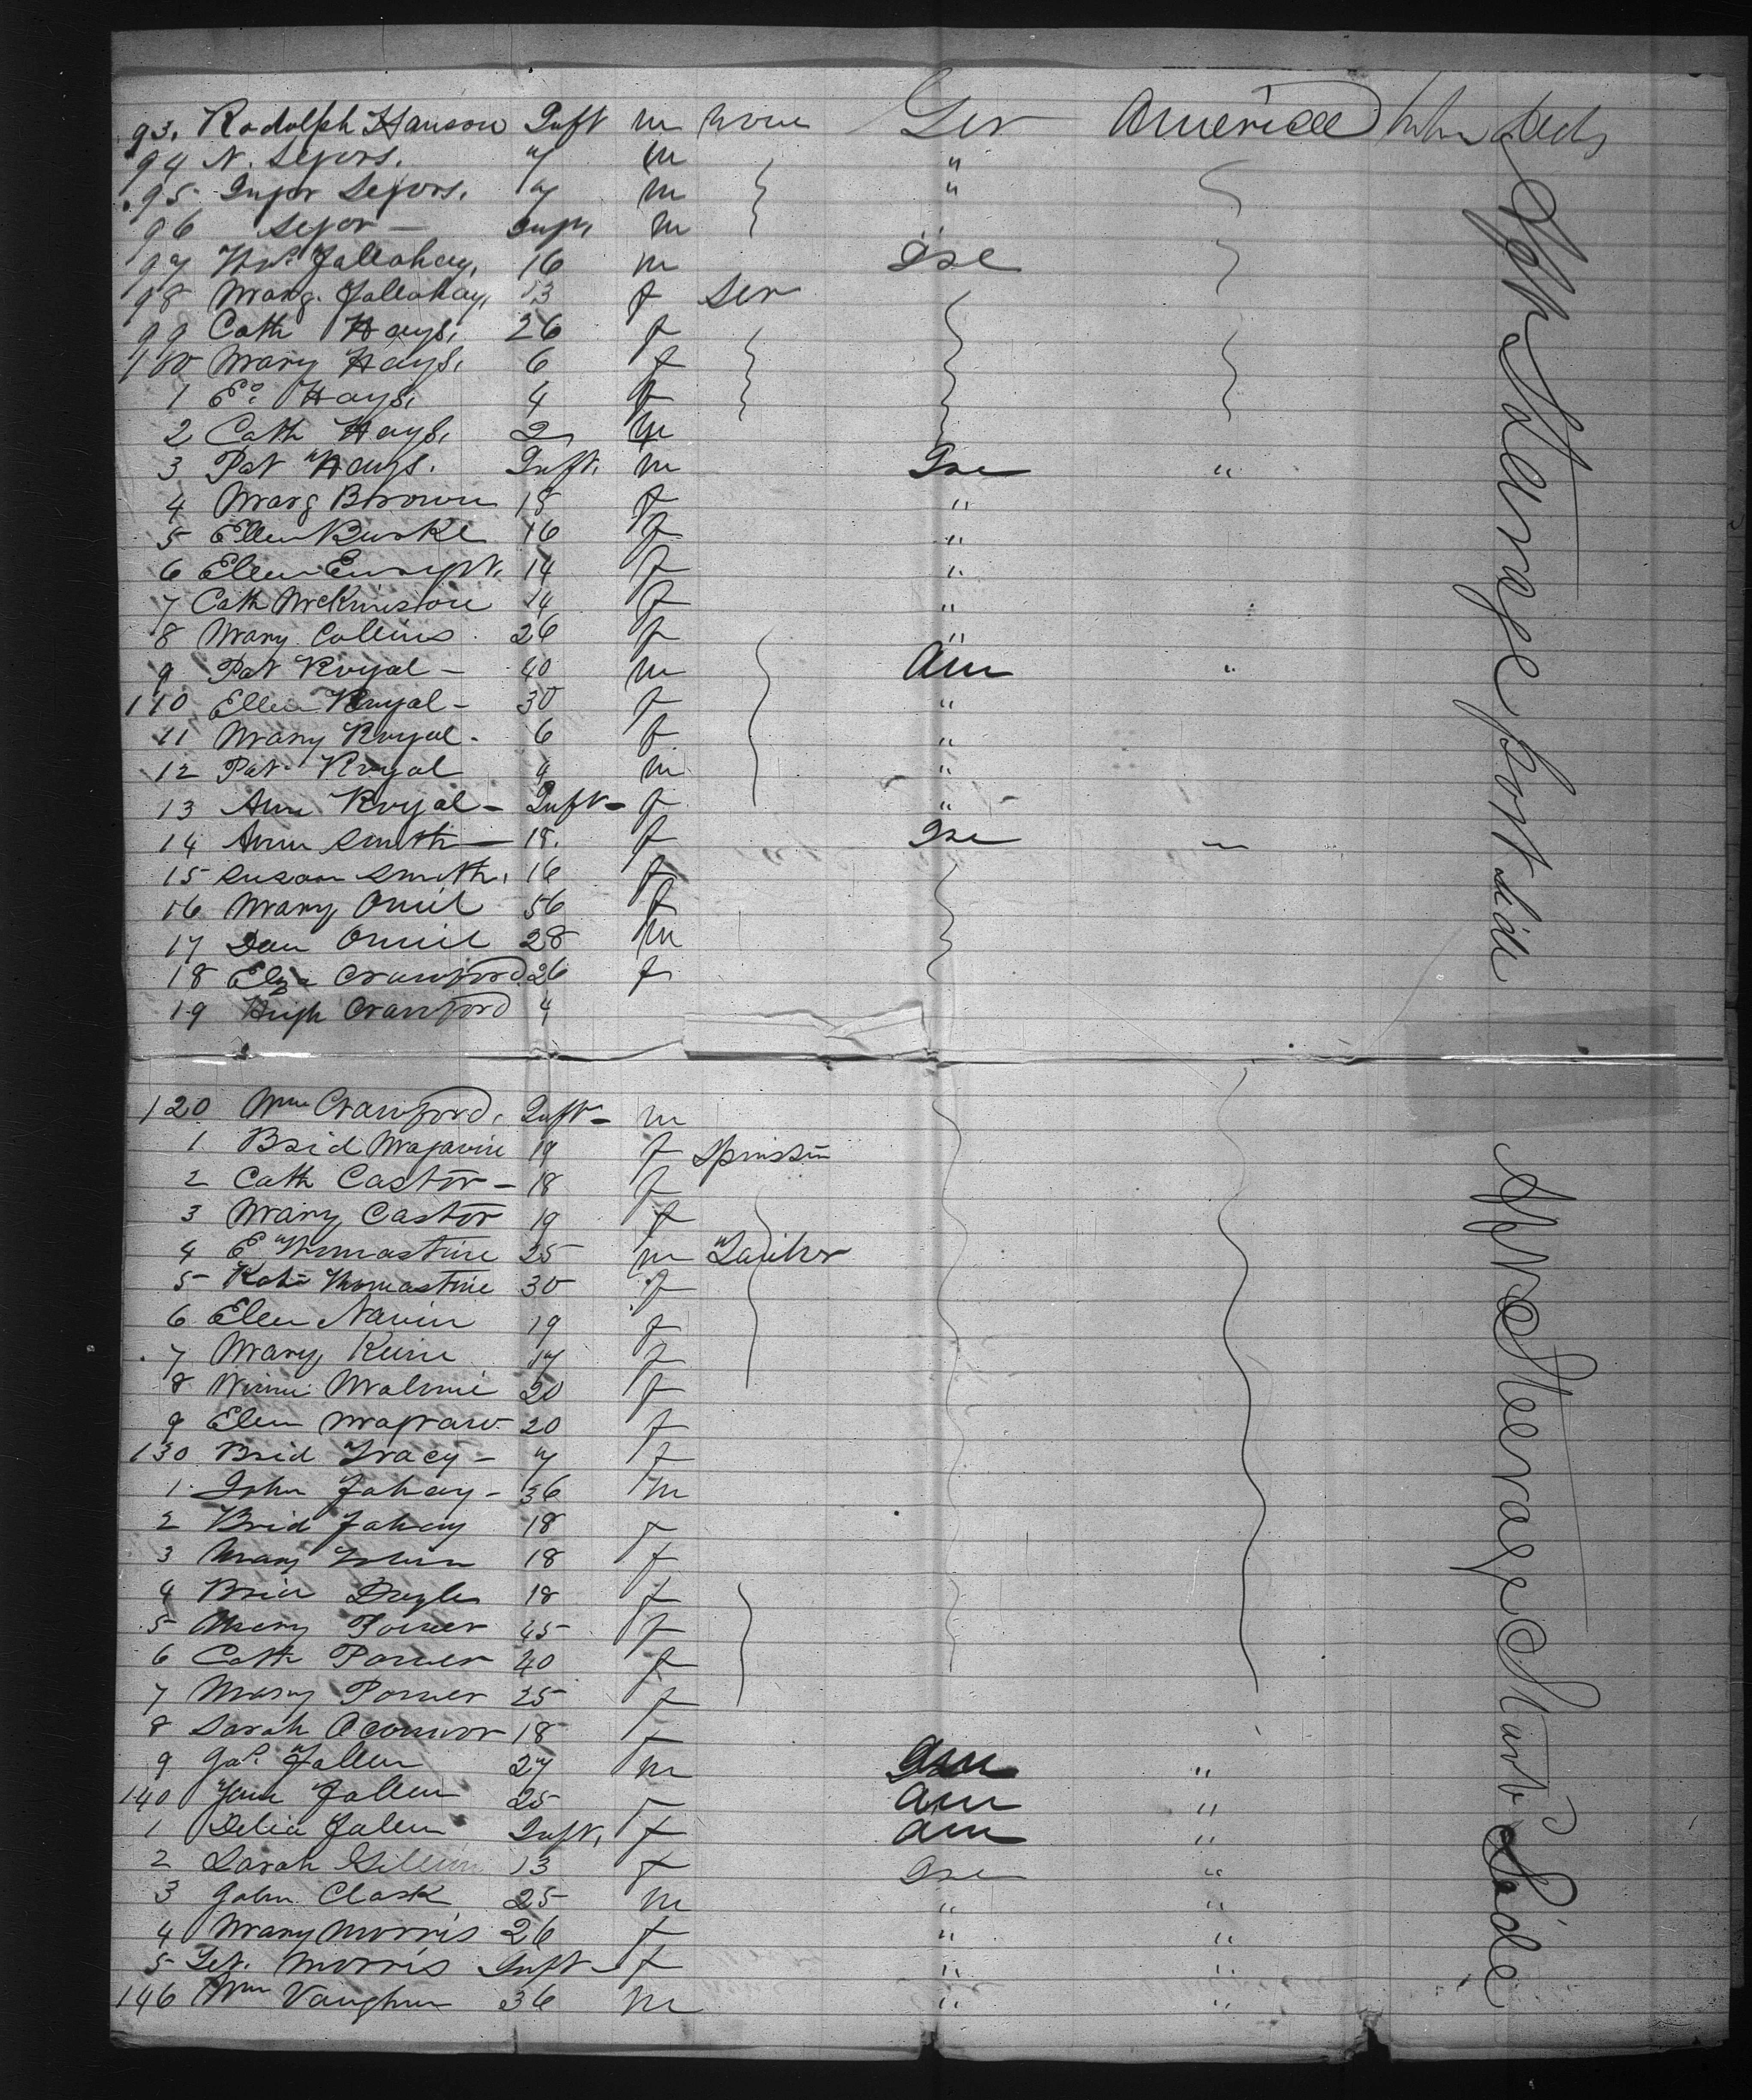 93. Rodolph Hanson Inft m none Ger America
94 N. Sejors. " m "
95 Sejors. m "
96 Sejor — Inft m
97 Fallahay, 16 m Ire
98 Marg. Fallahay, 13 f Ser
99 Cath Hays, 26 f
100 Mary Hays, 6 f
1 Eo: Hays, 4 f
2 Cath Hays, 2
3 Pat Hays. Inft. m Ire "
4 Marg Brown 18 f "
5 Ellen Burke 16 f "
6 Ellen 14 f "
7 Cath McKiniston 24 f "
8 Mary Collins 26 f "
9 Pat Royal — 40 m Am "
110 Ellen Royal — 30 f "
11 Mary Royal. 6 f "
12 Pat. Royal 4 m "
13 Ann Royal — Inft — f "
14 Ann Smith — 18. f Ire "
15 Susan Smith, 16 f
16 Mary Oneil 56 f
17 Dan Oneil 28 m
18 Eliza Crawford 26 f
19 Hugh Crawford 4
Aft Steerage port side
120 Wm Crawford, Inft — m
1. Brid 19 f Spinster
2 Cath Castor — 18 f
3 Mary Castor 19 f
4 E Thomastine 25 m
5 Kate Thomastine 30 f
6 Ellen Navin 19 f
7 Mary 17 f
8 Winni Malone 20 f
9 Ellen 20 f
130 Brid Tracy — f
1. John Fahay — 36 m
2 Brid Fahay 18 f
3 Mary 18 f
4 Brid Doyle 18 f
5 Mary Power 45 f
6 Cath Power 40 f
7 Mary Power 25 f
8 Sarah Oconnor 18 f
9 Jas. Fallen 27 m Am "
140 Jane Fallen 25 f Am "
1 Delia Falen Inft. f Am "
2 Sarah 13 f Ire "
3 John Clark 25 m " "
4 Mary Morris 26 f " "
5 Morris Inft — f " "
146 Wm Vaughn 36 m " "
Steerage Starb Side